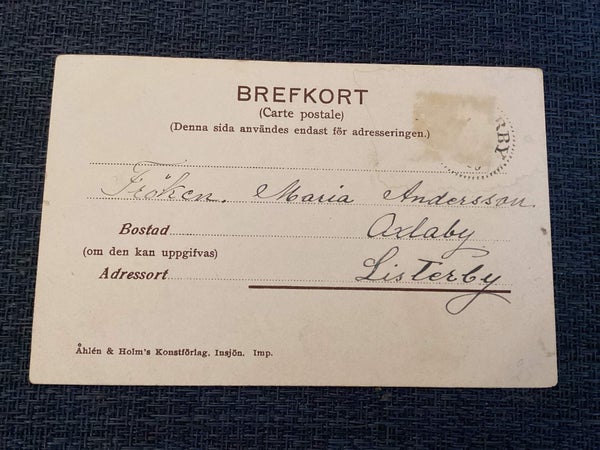 BREFKORT
(Carte postale)
(Denna sida användes endast för adresseringen.)
RBY
Fröken. Maria Andersson.
Bostad Axlaby
(om den kan uppgifvas)
Adressort Listerby
Åhlén & Holm's Konstförlag, Insjön. Imp.